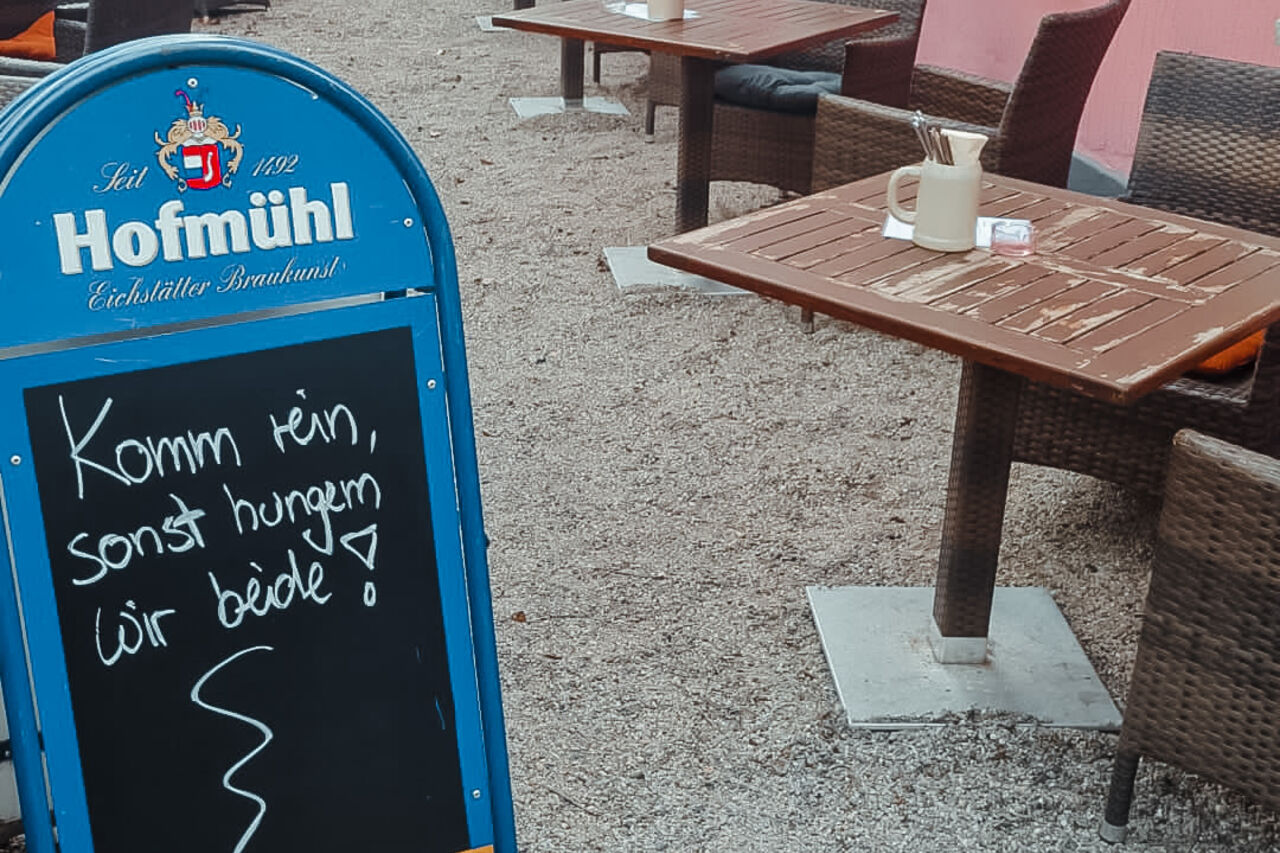 Seit 1492
Hofmühl
Eichstätter Braukunst
Komm rein,
sonst hungern
wir beide!